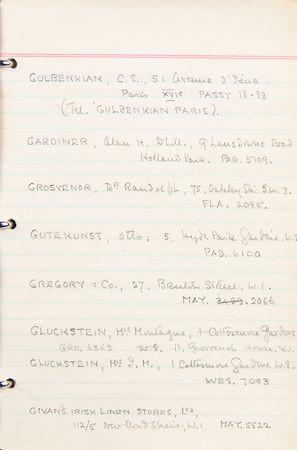 GULBENKIAN, C.S., 51 Avenue D'Iéna.
Paris XVIe PASSY 18-38
(Tel. 'GULBENKIAN PARIS').
GARDINER, Alan H. D.Litt., 9 Lansdowne Road
Holland Park. PAR. 5109.
GROSVENOR, Dr Randolph, 75, Oakley St. S.W.3.
FLA. 2085.
GUTEKUNST, Otto; 5, Hyde Park Gardens, W.2
PAD. 6100
GREGORY & Co., 27, Bruton Street, W.1.
MAY. 2066
GLUCKSTEIN, Mrs Montague, Cottesmore Gardens
GRO. 6363 W.8. 11, Grosvenor House, W.1
GLUCKSTEIN, Mrs I. M., 1 Cottesmore Gardens W.8.
WES. 7083
GIVAN'S IRISH LINEN STORES, Ltd,
112/5 New Bond Street, W.1. MAY. 5522